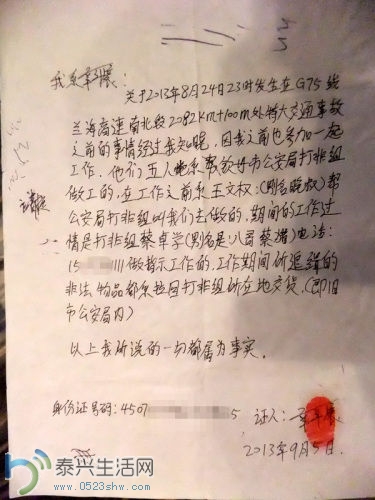 关于2013年8月24日23时发生在G75线
兰海高速南北段2082km+100m处特大交通事故
之前的事情经过我知呢,因我之前也参加一起
工作,他们五人她系帮钦州市公安局打非组
做工的,在工作之前系王文权:(别名晚叔)帮
公安局打非组叫我们去做的,期间的工作过
情是打非组蔡卓学(别名是:八哥 蔡满)电话:
15 1111做指示工作的,工作期间所追缉的
非法物品都系拉回打非组所在地交货。(即旧
市公安局内)
以上我所说的一切都属为事实。
身份证号码:4507 5 证人:
2013年9月5日.
泰兴生活网
www.0523shw.com